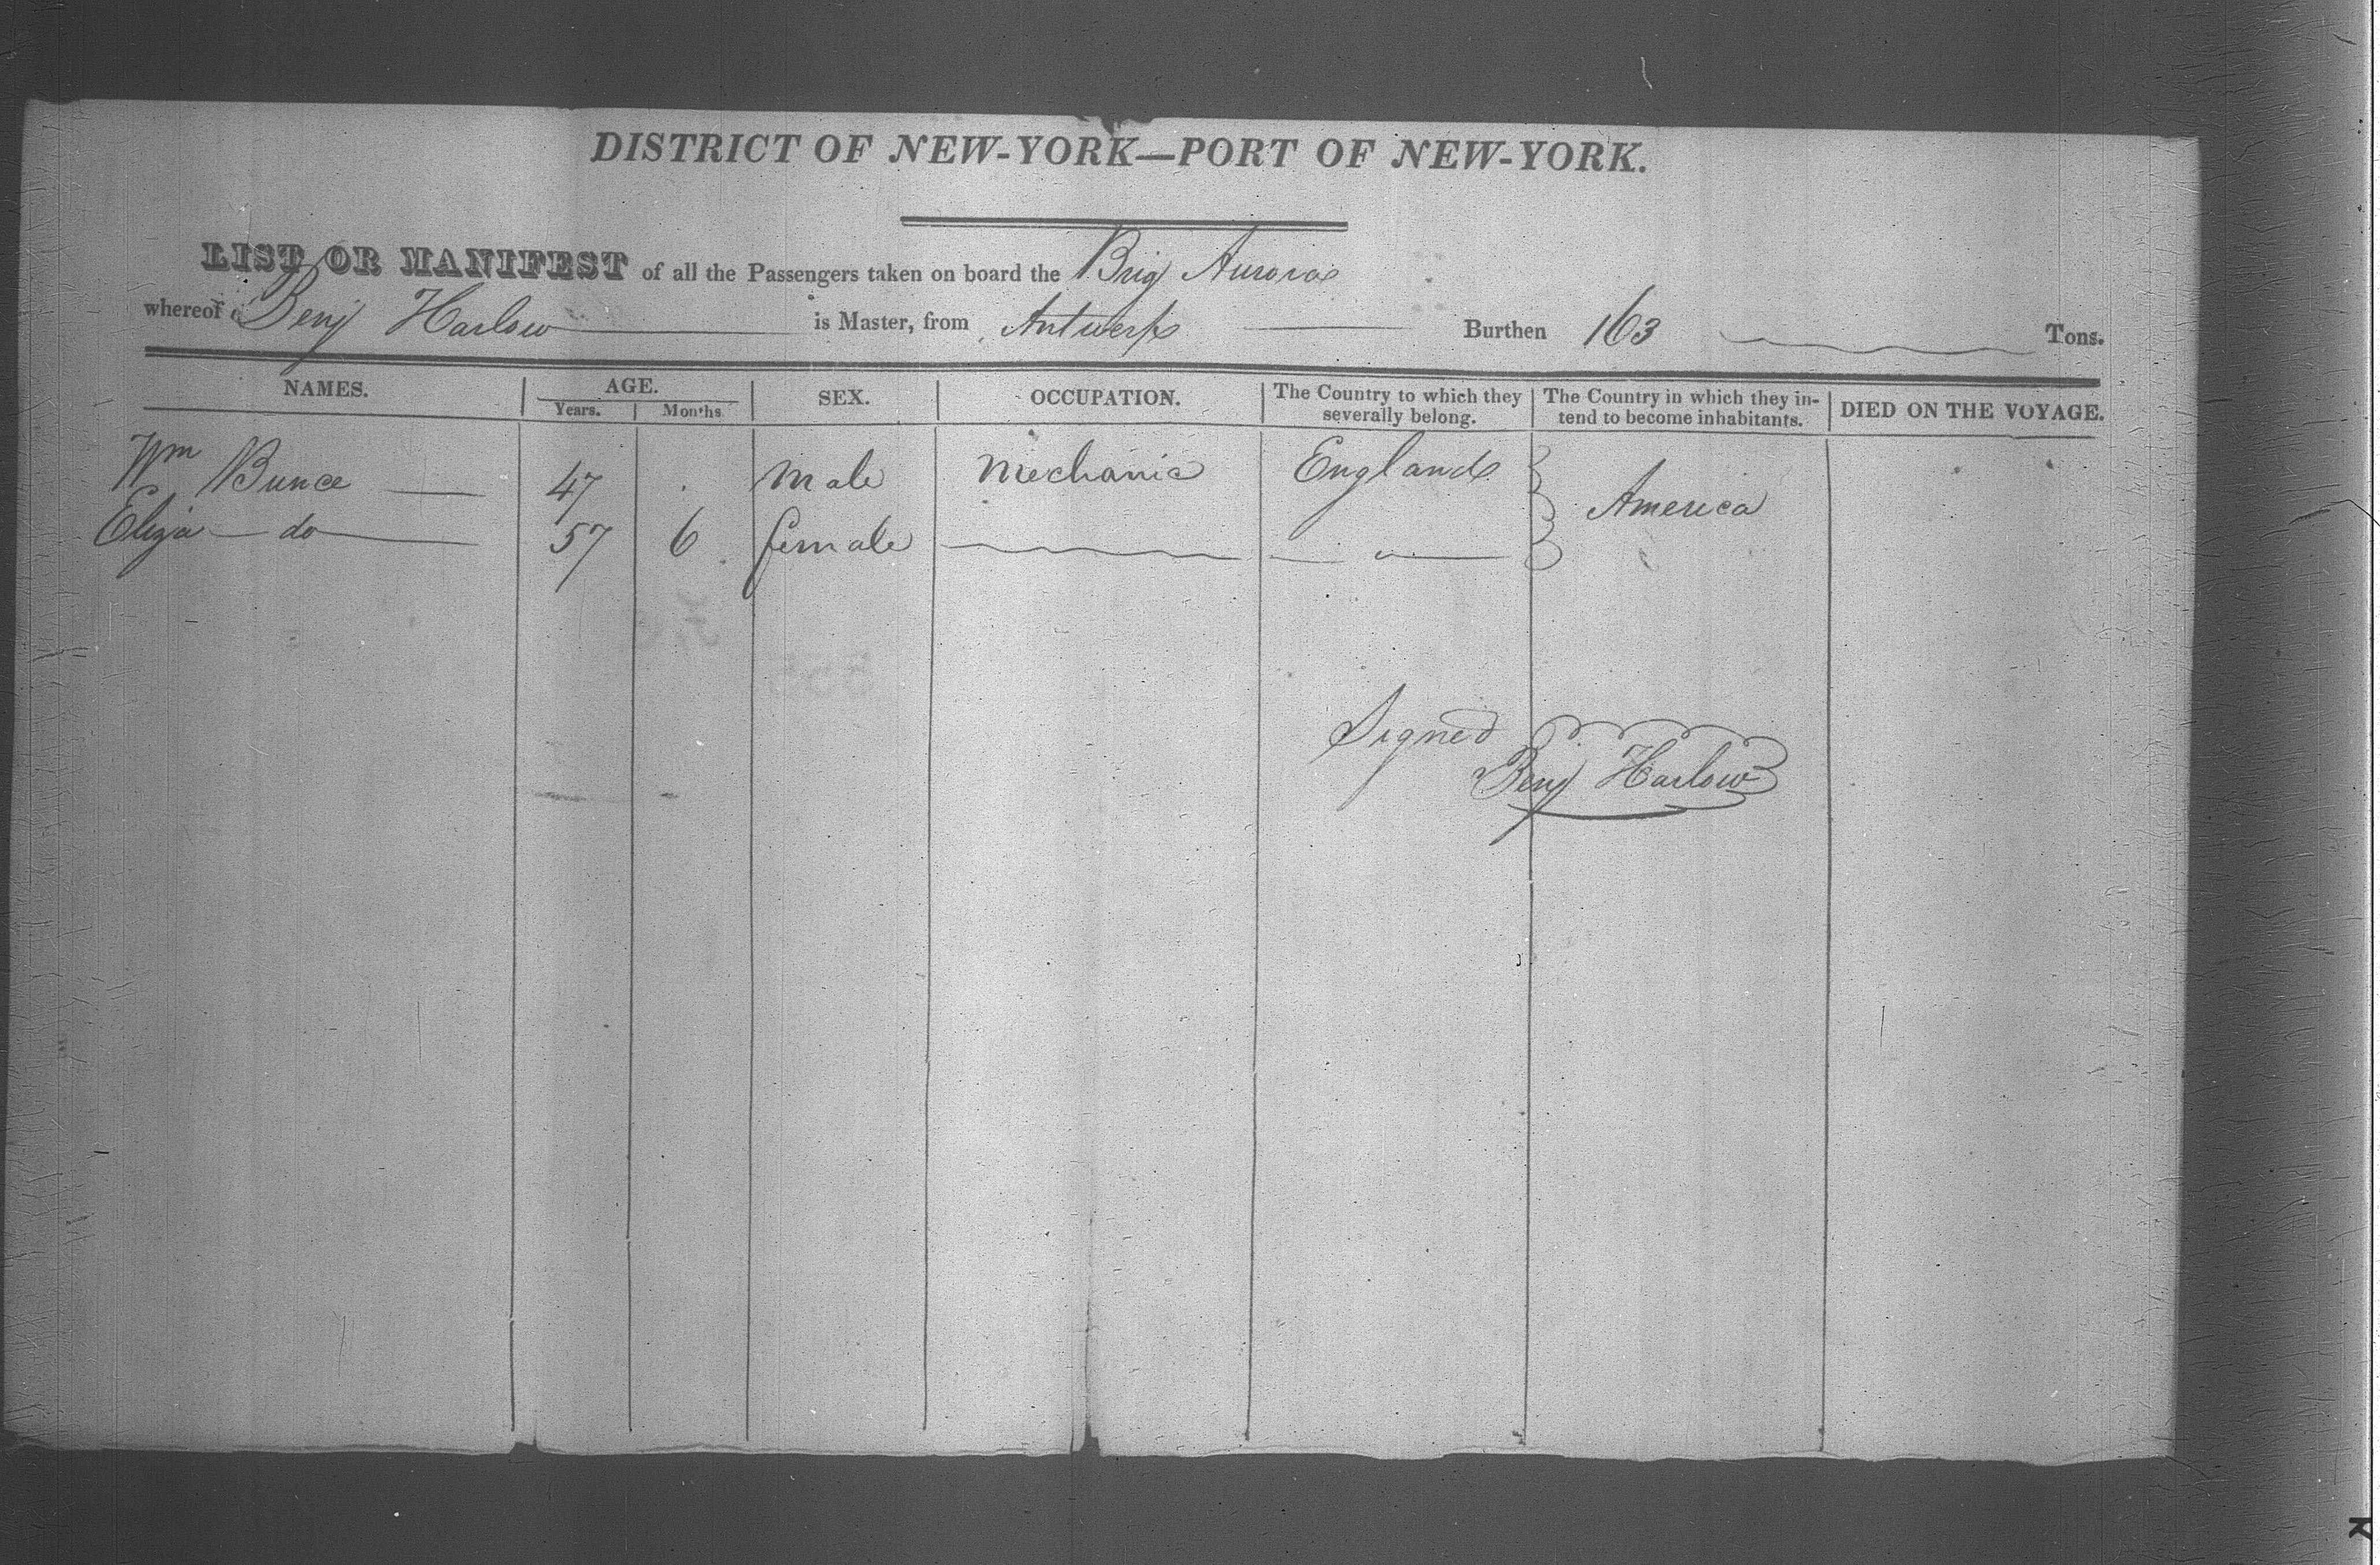 DISTRICT OF NEW-YORK—PORT OF NEW-YORK.
LIST OR MANIFEST of all the Passengers taken on board the Brig Aurora
whereof Benj Harlow is Master, from Antwerp Burthen 163 Tons.
NAMES. AGE. SEX. OCCUPATION. The Country to which they severally belong. The Country in which they in-tend to become inhabitants. DIED ON THE VOYAGE.
Years. Months.
Wm Bunce 47 Male Mechanic England America
Eliza do 57 6 female
Signed
Benj Harlow